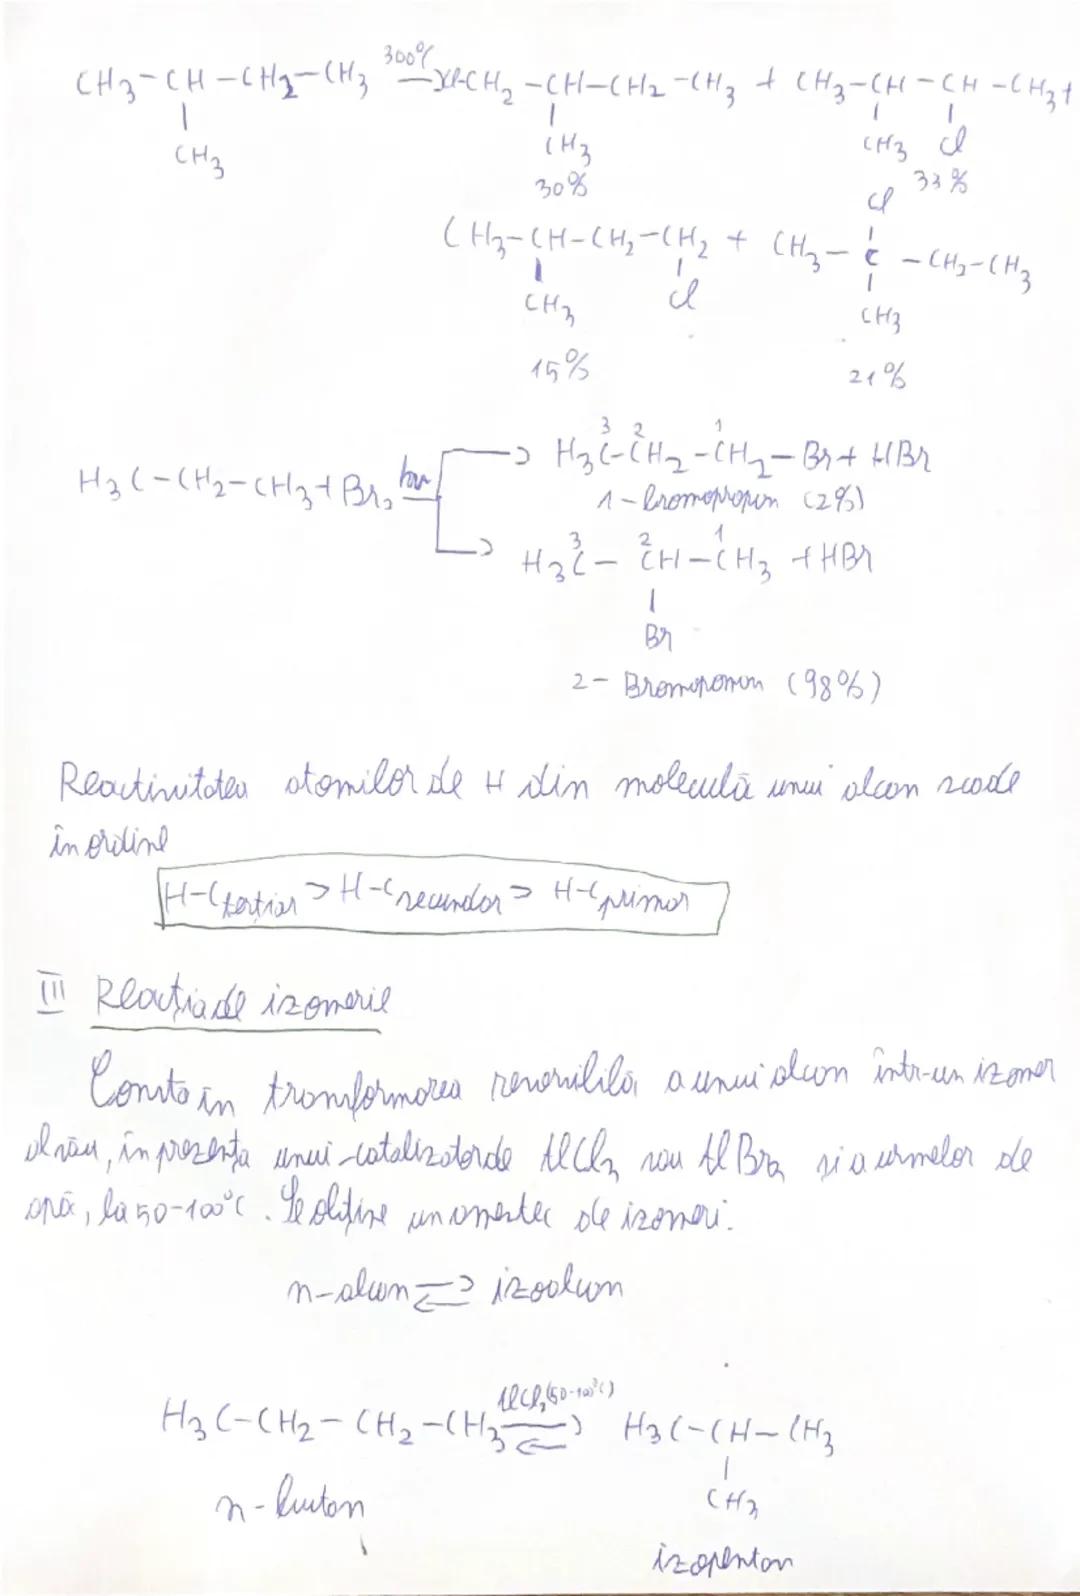 CH3-CH-CH2-CH3 300°C Cl-CH2-CH-CH2-CH3 + CH3-CH-CH-CH3+
CH3 CH3 CH3 Cl
30% 33%
Cl
CH3-CH-CH2-CH2 + CH3-C-CH2-CH3
CH3 Cl CH3
15% 21%
3 2 1
H3C-CH2-CH2-Br+HBr
H3C-CH2-CH3+Br2 hν
1-bromopropan (2%)
3 2 1
H3C-CH-CH3 +HBr
Br
2-Bromopropan (98%)
Reactivitatea atomilor de H din moleculă unui alcan scade
în ordine
H-Cterțiar > H-Csecundar > H-Cprimar
III Reacția de izomerie
Constă in transformarea reversibilă a unui alcan într-un izomer
al său, în prezența unui catalizator de AlCl3 sau AlBr3 și a urmelor de
apă, la 50-100°C. Se obține un amestec de izomeri.
n-alcan ⇌ izoalcan
AlCl3(50-100°C)
H3C-CH2-CH2-CH3 ⇌ H3C-CH-CH3
CH3
n-butan
izopentan